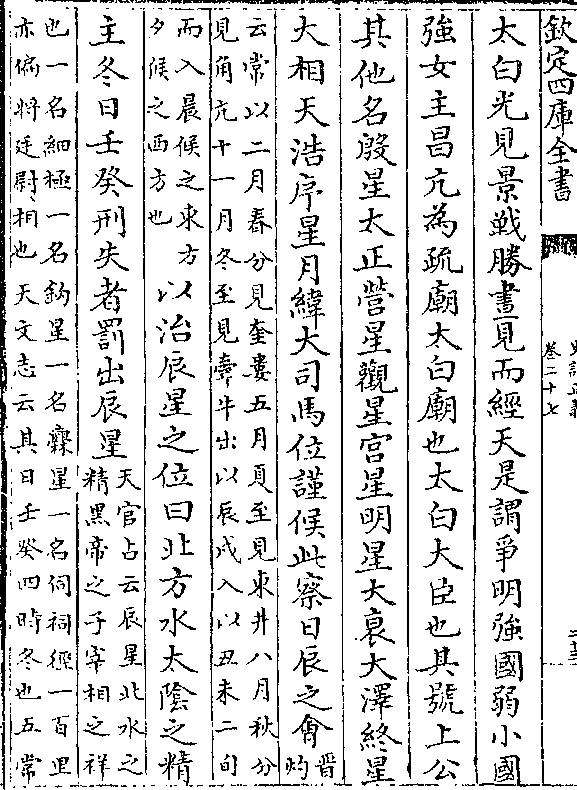 欽定四庫全書
史記正義
卷二十七
太白光見景戰勝晝見而經天是謂爭明強國弱小國
強女主昌亢為疏廟太白廟也太白大臣也其號上公
其他名殷星太正營星觀星宫星明星大衰大澤終星
大相天浩序星月緯大司馬位謹候此察日辰之會
晉
灼
云常以二月春分見奎婁五月夏至見東井八月秋分
見角亢十一月冬至見牽牛出以辰戌入以丑未二旬
而入晨候之東方
夕候之西方也
以治辰星之位曰北方水太陰之精
主冬日壬癸刑失者罰出辰星
天官占云辰星北水之
精黑帝之子宰相之祥
也一名細極一名鈎星一名爨星一名伺祠徑一百里
亦偏將廷尉相也天文志云其日壬癸四時冬也五常